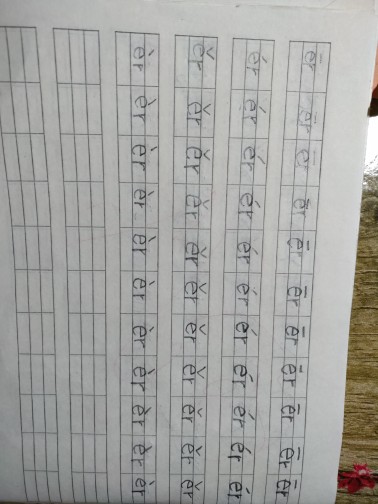 ēr ēr ēr ēr ēr ēr ēr ēr ēr ēr ēr
ér ér ér ér ér ér ér ér ér ér ér
ěr ěr ěr ěr ěr ěr ěr ěr ěr ěr ěr
èr èr èr èr èr èr èr èr èr èr èr